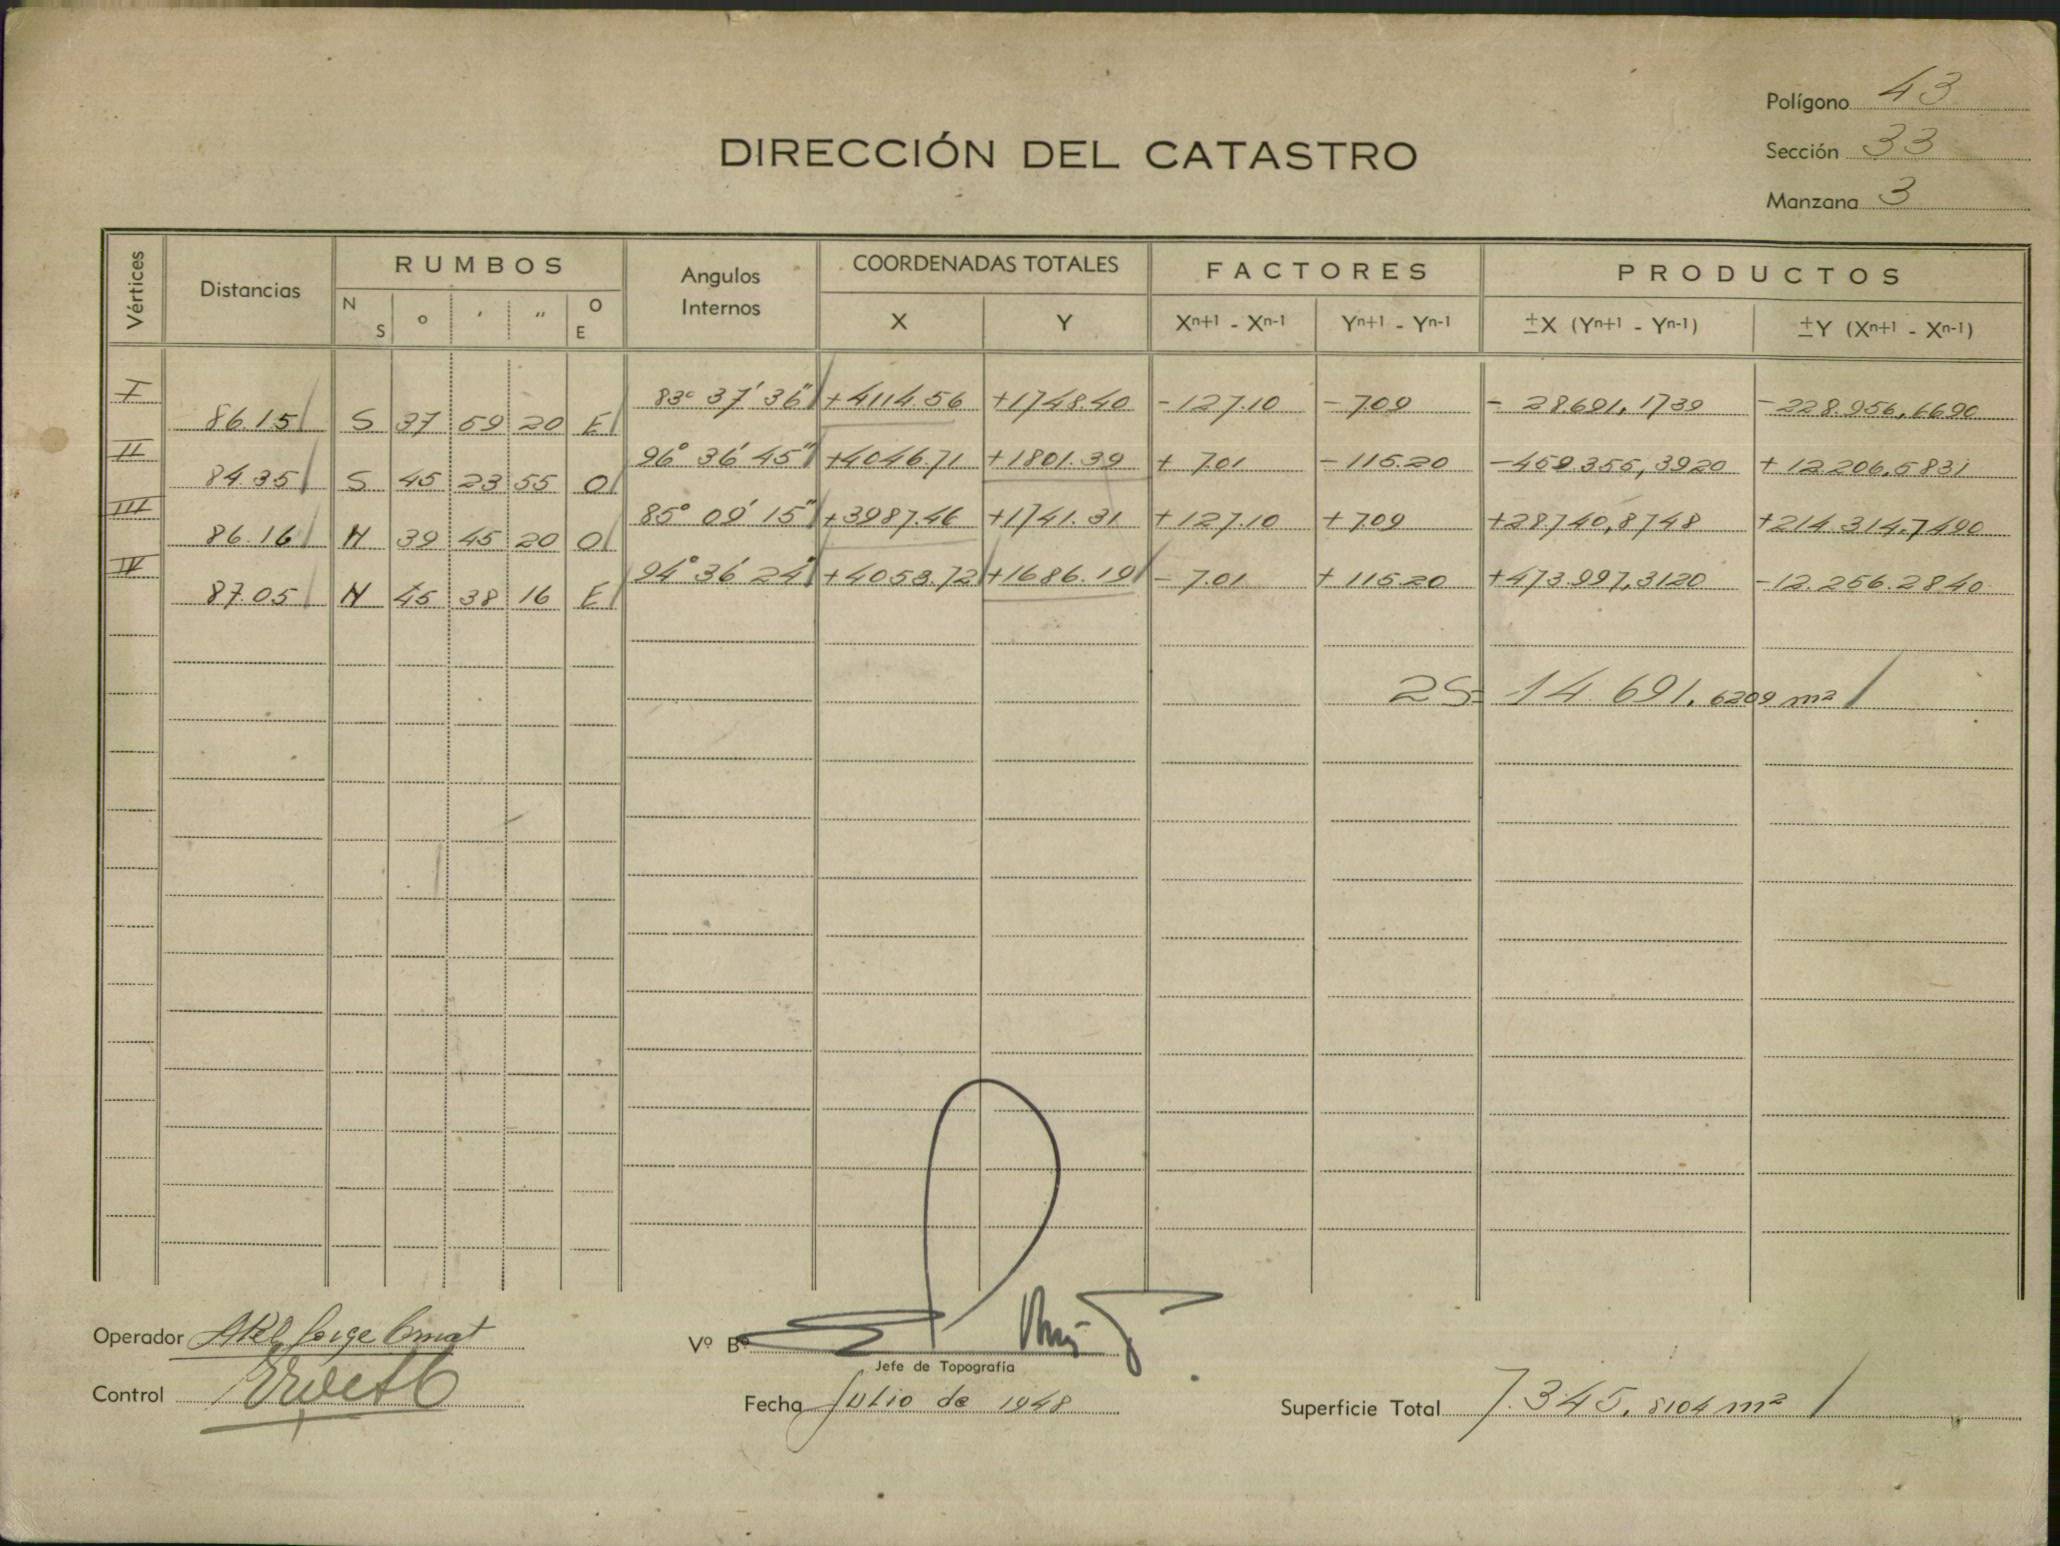 Polígono 43
Sección 33
Manzana 3
DIRECCIÓN DEL CATASTRO
Vértices Distancias RUMBOS Angulos Internos COORDENADAS TOTALES FACTORES PRODUCTOS
N S ° ′ ″ O E X Y Xn+1 - Xn-1 Yn+1 - Yn-1 ±X (Yn+1 - Yn-1) ±Y (Xn+1 - Xn-1)
I 83° 37' 36" +4114.56 +1748.40 -127.10 -7.09 -28.691,1739 -228.956,6690
86.15 S 37 59 20 E
II 96° 36' 45" +4046.71 +1801.39 +7.01 -115.20 -459.355,3920 +12.206,5831
84.35 S 45 23 55 O
III 85° 09' 15" +3987.46 +1741.31 +127.10 +7.09 +28.740,8748 +214.314,7490
86.16 N 39 45 20 O
IV 94° 36' 24" +4053.72 +1686.19 -7.01 +115.20 +473.997,3120 -12.256.2840
87.05 N 45 38 16 E
2S= 14.691,6209 m²
Operador Jorge
Vº Bº
Jefe de Topografía
Control
Fecha Julio de 1948
Superficie Total 7.345,8104 m²